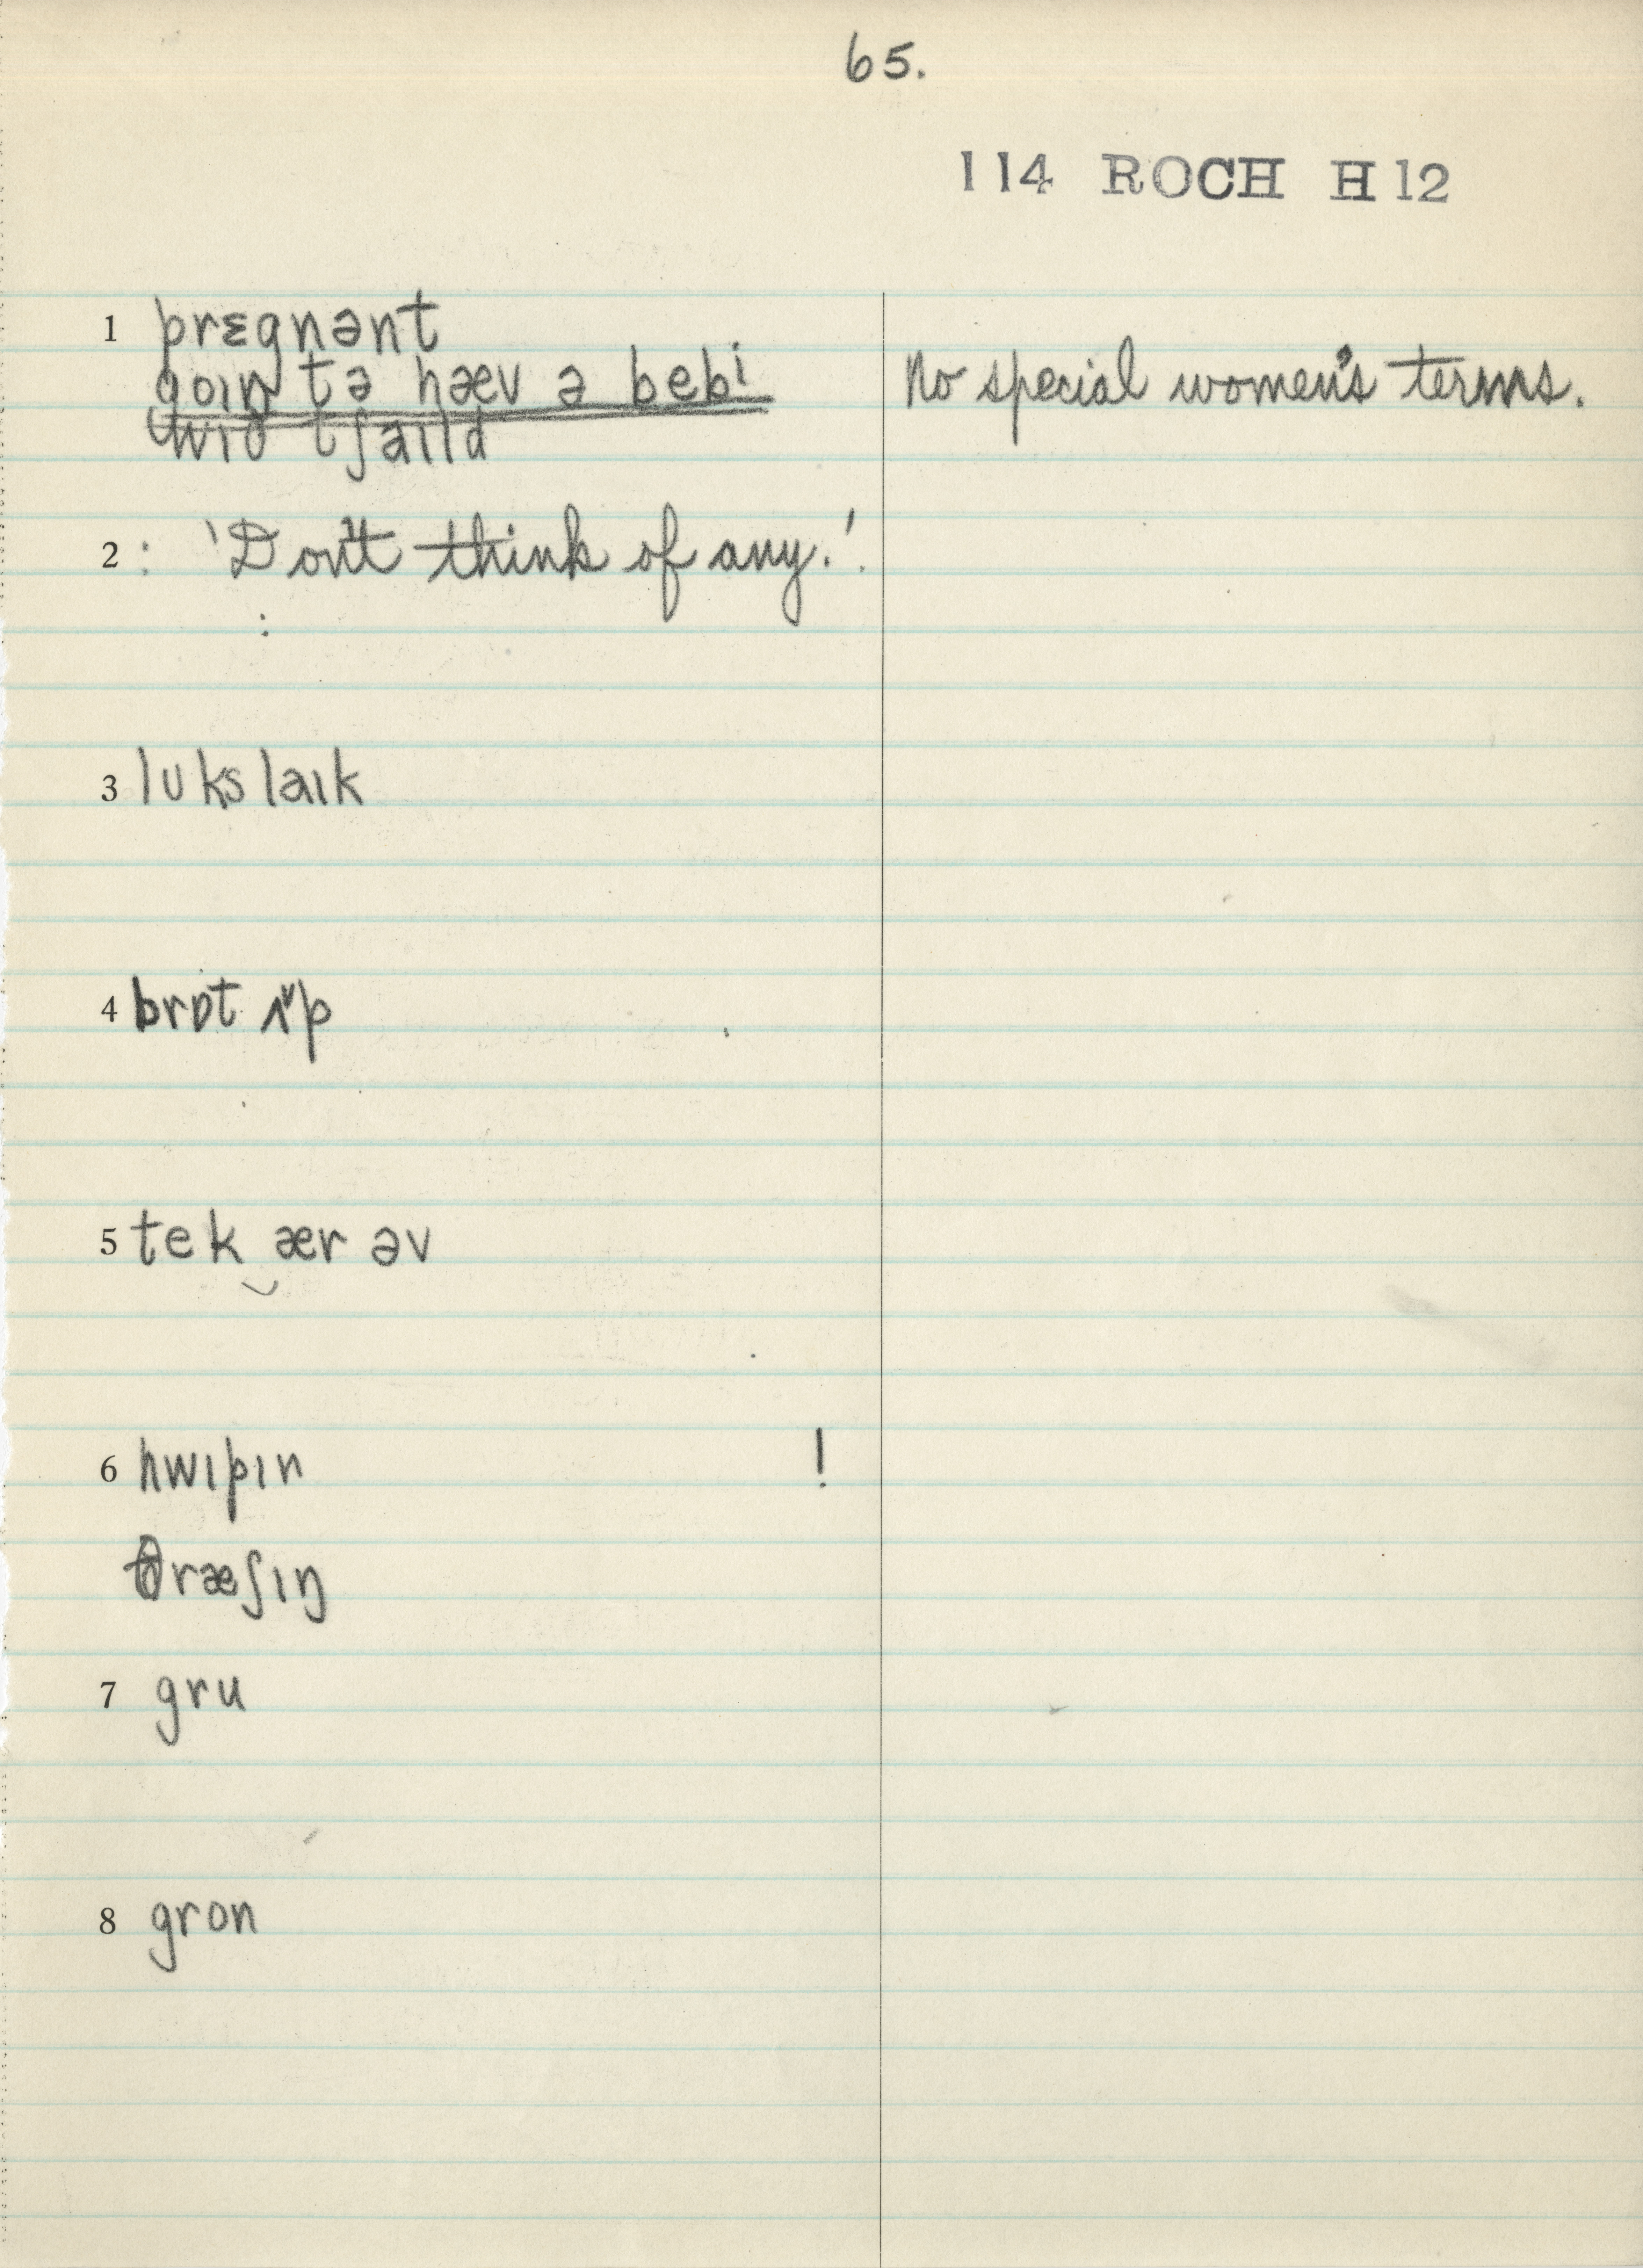 65.
114 ROCH H12
1 prɛgnənt
goɪŋ tə hæv ə bebi No special women's terms.
wɪð tʃaɪld
2 : 'Don't think of any.'.
:
3 lʊks laɪk
4 brɒt ʌ˅p
5 tek‿ær əv
6 hwɪpɪn !
θræʃɪŋ
7 gru
8 gron